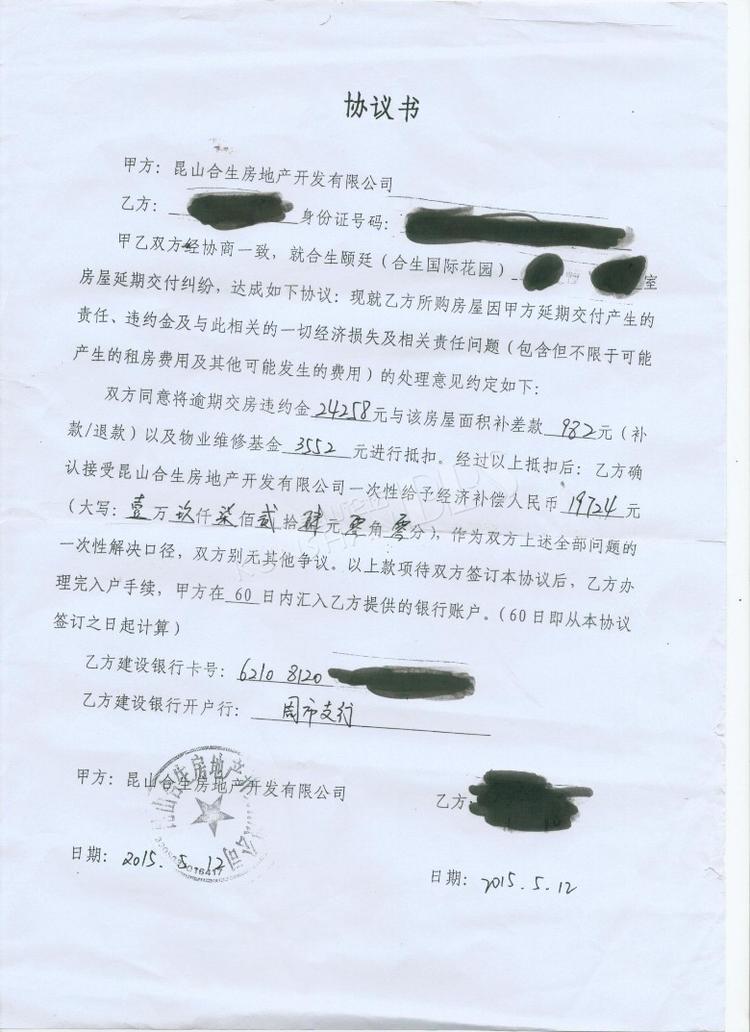 协议书
甲方：昆山合生房地产开发有限公司
乙方：身份证号码：
甲乙双方经协商一致，就合生颐廷（合生国际花园）室
房屋延期交付纠纷，达成如下协议：现就乙方所购房屋因甲方延期交付产生的
责任、违约金及与此相关的一切经济损失及相关责任问题（包含但不限于可能
产生的租房费用及其他可能发生的费用）的处理意见约定如下：
双方同意将逾期交房违约金 24258 元与该房屋面积补差款 982 元（补
款/退款）以及物业维修基金 3552 元进行抵扣。经过以上抵扣后：乙方确
认接受昆山合生房地产开发有限公司一次性给予经济补偿人民币 19724 元
（大写：壹万玖仟柒佰贰拾肆元零角零分），作为双方上述全部问题的
一次性解决口径，双方别无其他争议。以上款项待双方签订本协议后，乙方办
理完入户手续，甲方在 60 日内汇入乙方提供的银行账户。（60 日即从本协议
签订之日起计算）
乙方建设银行卡号：6210 8120
乙方建设银行开户行：周市支行
甲方：昆山合生房地产开发有限公司
乙方
日期：2015.5.12
日期：2015.5.12